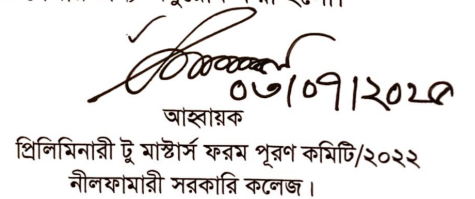 ০৩/০৭/২০২৫
আহ্বায়ক
প্রিলিমিনারী টু মাস্টার্স ফরম পূরণ কমিটি/২০২২
নীলফামারী সরকারি কলেজ।